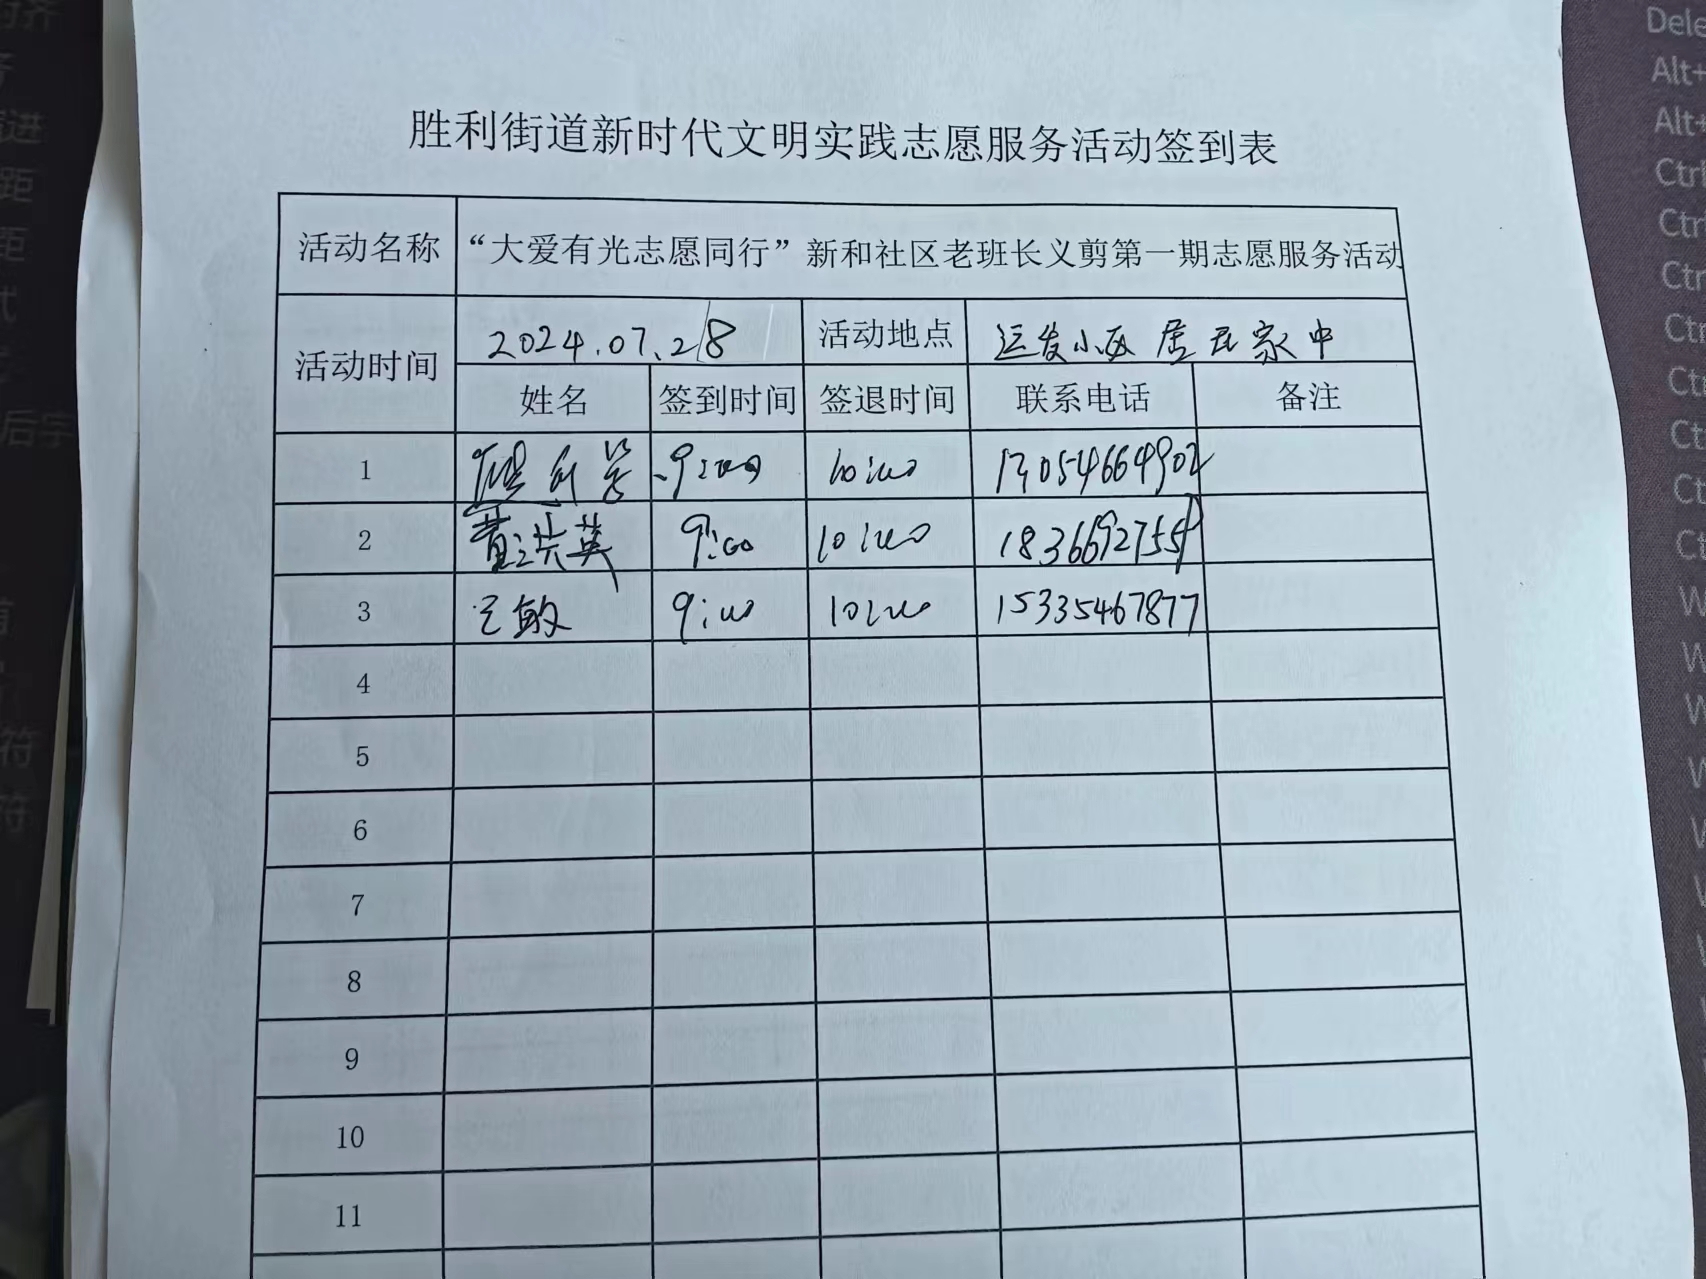 胜利街道新时代文明实践志愿服务活动签到表
活动名称 “大爱有光志愿同行”新和社区老班长义剪第一期志愿服务活动
活动时间 2024.07.28 活动地点 运发小区居民家中
姓名 签到时间 签退时间 联系电话 备注
1 9:00 10:00 13054664902
2 董洪英 9:00 10:00
3 王敏 9:00 10:00 15335467877
4
5
6
7
8
9
10
11
Dele
Alt+
Alt+
Ctrl
Ctr
Ctr
Ctr
Ctr
Ct
Ct
Ct
W
W
W
W
进
距
距
后字
符
符